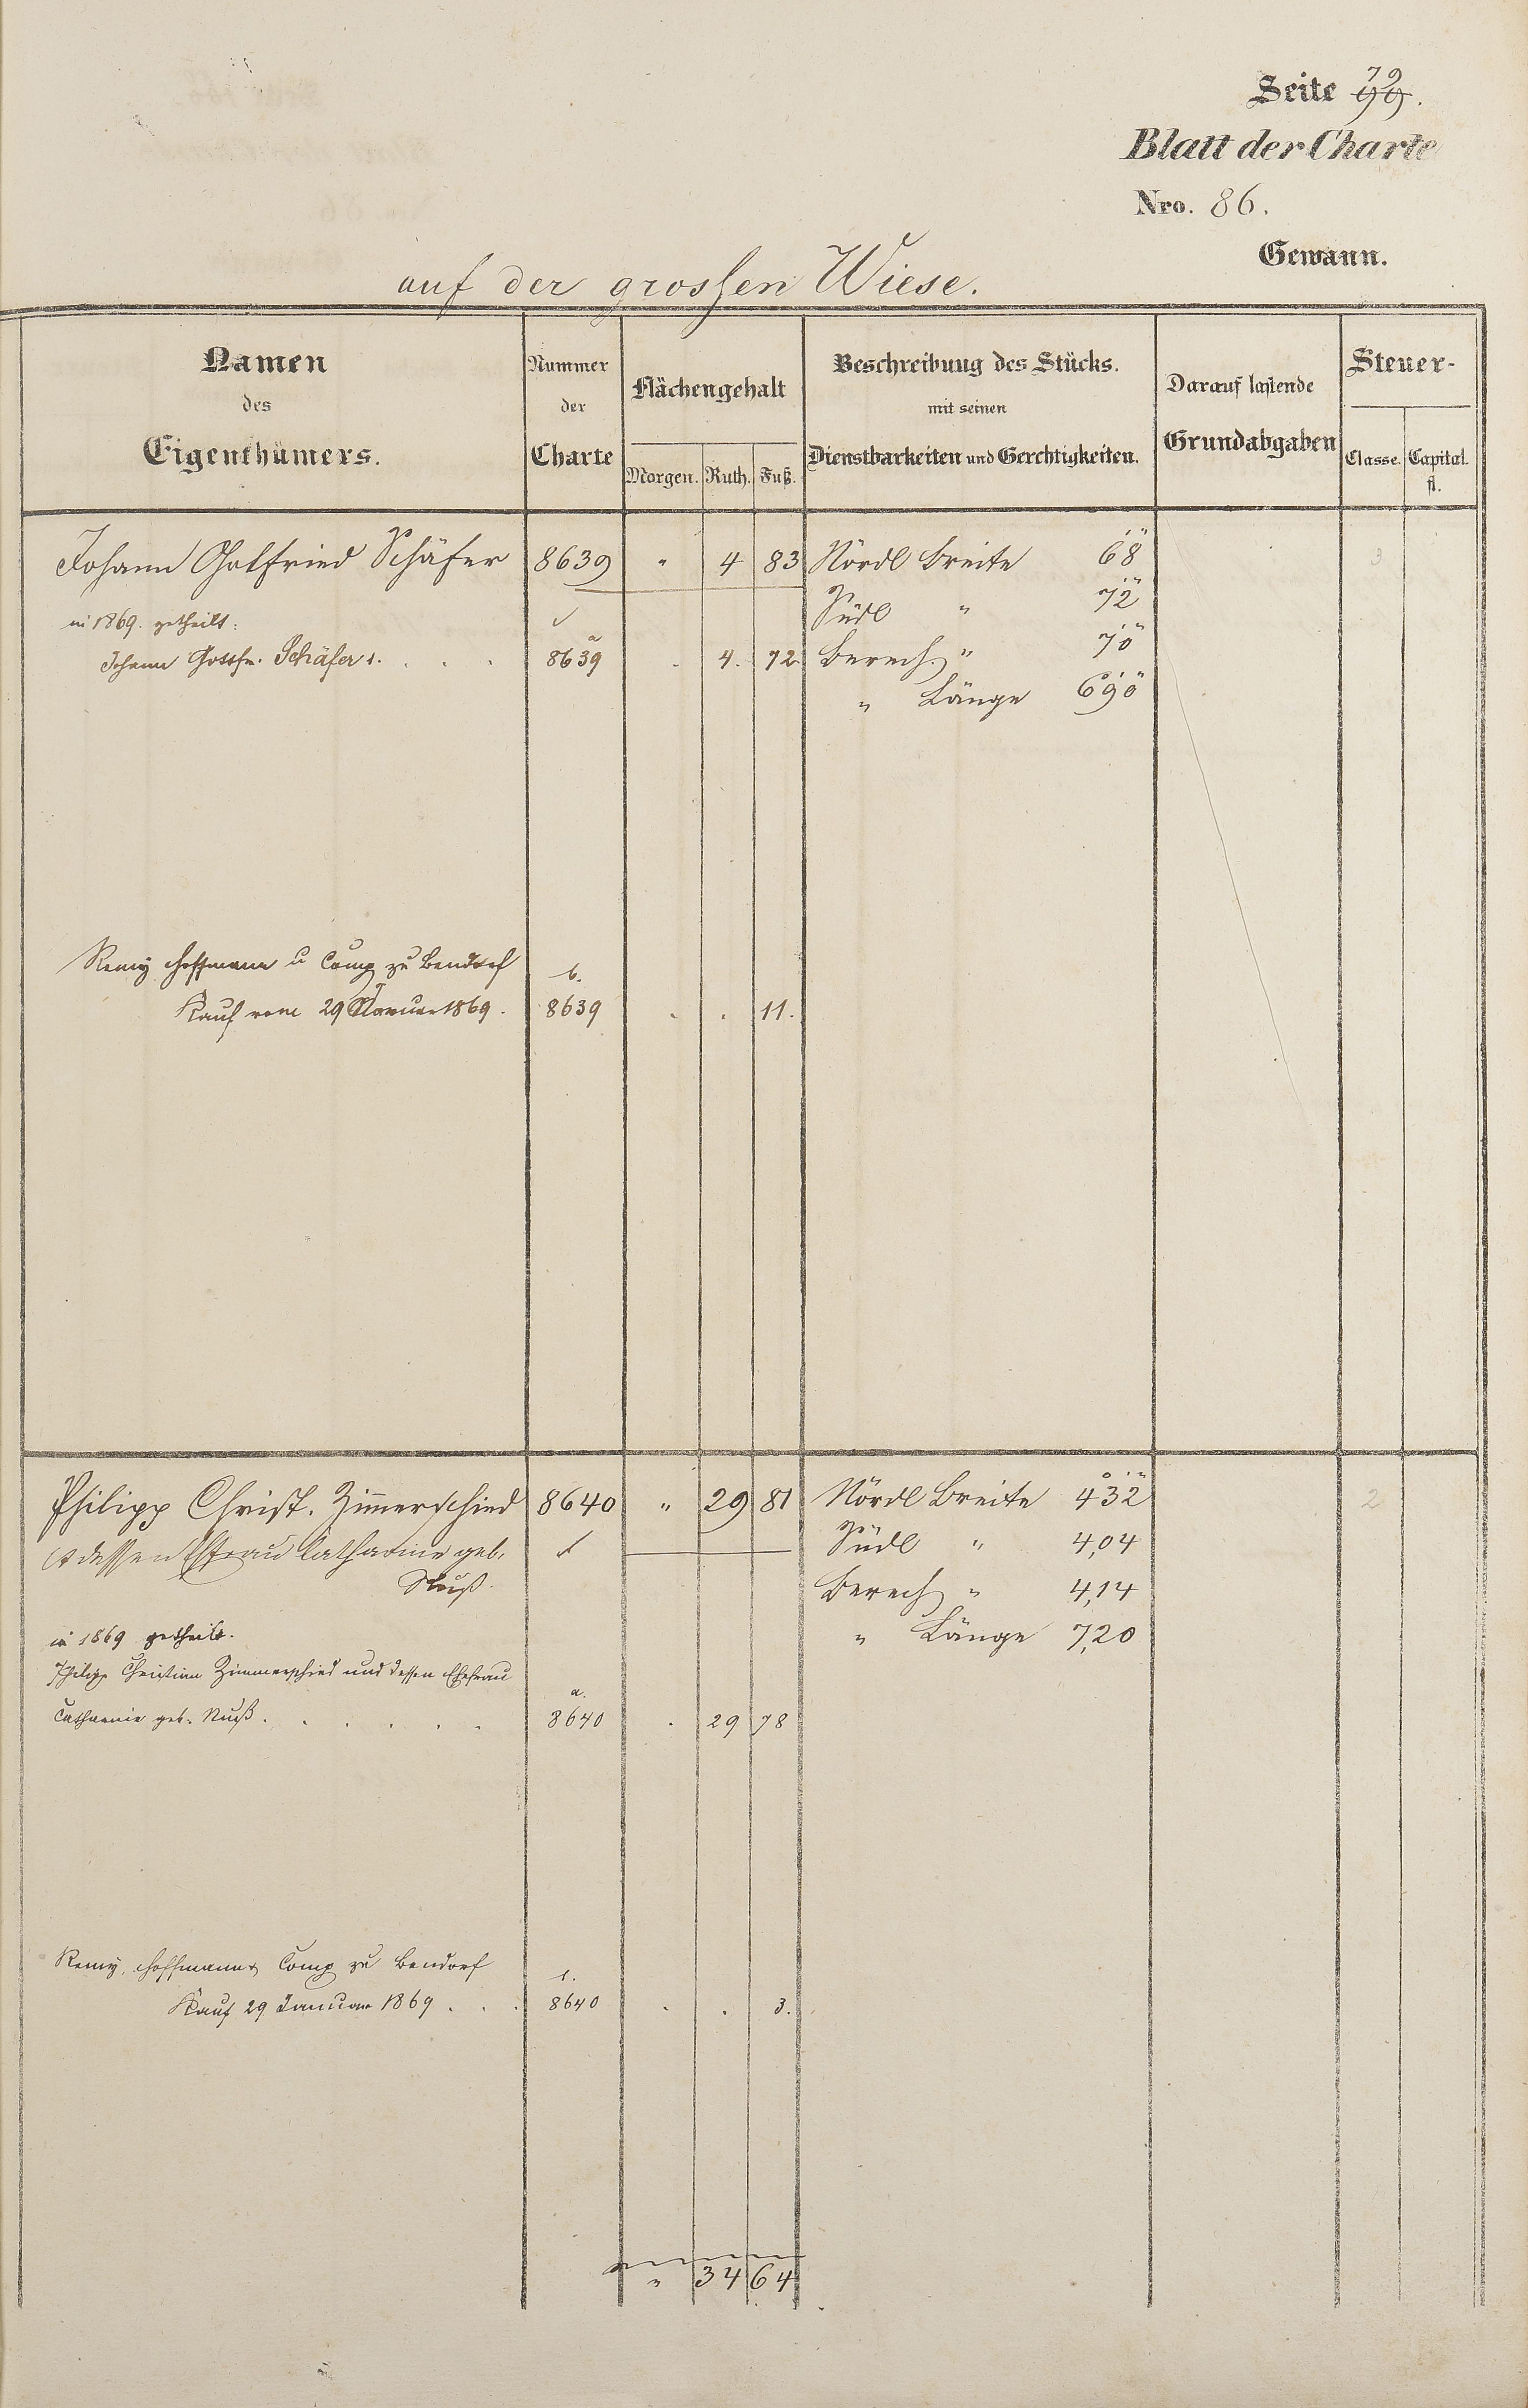 Seite 79
99.
Blatt der Charte
Nro. 86.
Gewann.
auf der grossen Wiese.
Namen des Eigenthümers.
Nummer der Charte
Flächengehalt
Morgen. Ruth. Fuß.
Beschreibung des Stücks.
mit seinen
Dienstbarkeiten und Gerechtigkeiten.
Darauf lastende
Grundabgaben
Steuer-
Classe. Capital.
fl.
Johann Gotfried Schäfer 8639 " 4 83 Nördl Breite 68 3
Südl " 72
in 1869. getheilt:
a
Johann Gottfr. Schäfer 1. . . . 8639 . 4. 72. Berech. " 70
" Länge 690
Remy Hoffmann u Comp zu Bendorf b.
Kauf vom 29 Januar 1869. 8639 . . 11.
Philipp Christ. Zimmerschied 8640 " 29 81 Nördl Breite 432 2
& dessen Ehefrau Catharine geb. Südl " 4,04
Nuß. Berech " 4,14
in 1869 getheilt. " Länge 7,20
Philipp Christian Zimmerschied und dessen Ehefrau a.
Catharine geb. Nuß. . . . . . 8640 . 29 78
Remy, Hoffmann & Comp zu Bendorf
Kauf 29 Januar 1869 . . . 8640 . . 3.
" 34 64